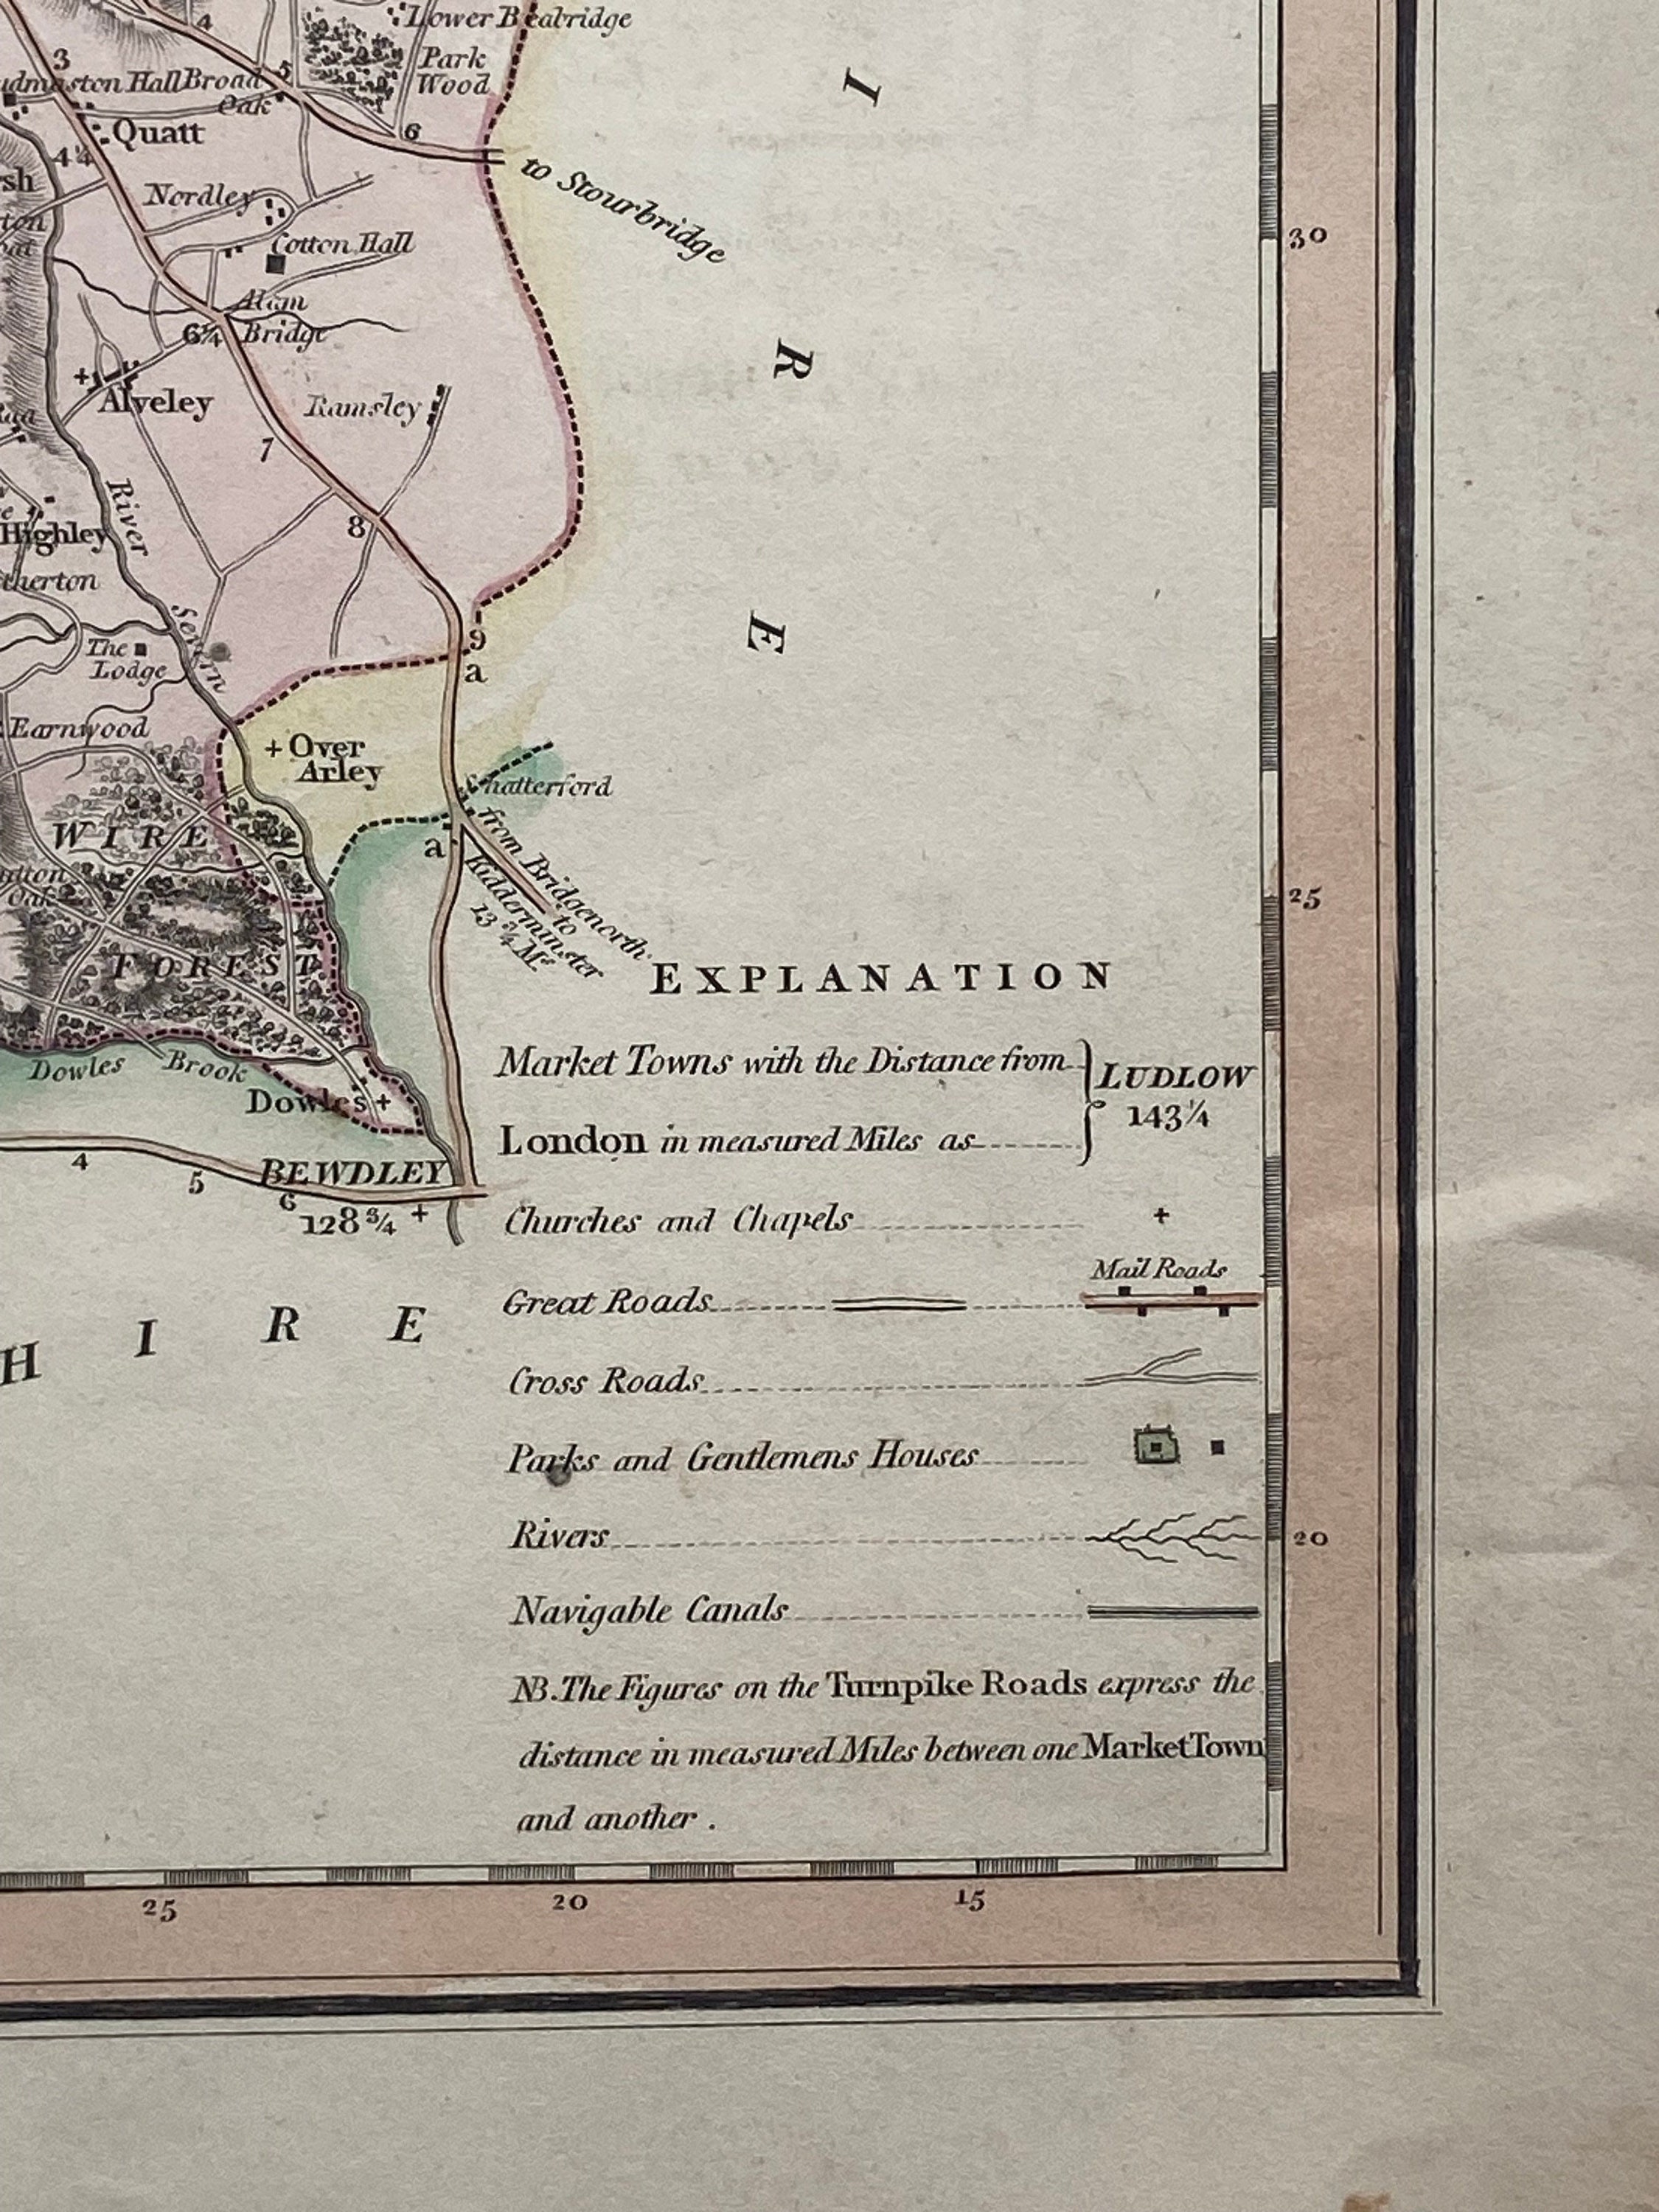 Lower Beabridge
4
Park
Wood
3
5
Hall Broad
Oak
6
Quatt
4¼
to Stourbridge
I
30
Nordley
Cotton Hall
Ham
Bridge
6¼
R
Alveley
Ramsley
7
River
8
Highley
E
Severn
The
Lodge
9
a
Earnwood
+ Over
Arley
Shatterford
a
from Bridgenorth
to
Kidderminster
13 ¾ Ms
WIRE
Oak
FOREST
25
Dowles Brook
Dowles +
4
5
BEWDLEY
6
128¾ +
H I R E
EXPLANATION
Market Towns with the Distance from
LUDLOW
143¼
London in measured Miles as
Churches and Chapels +
Mail Roads
Great Roads
Cross Roads
Parks and Gentlemens Houses
Rivers
20
Navigable Canals
NB. The Figures on the Turnpike Roads express the
distance in measured Miles between one Market Town
and another .
25 20 15